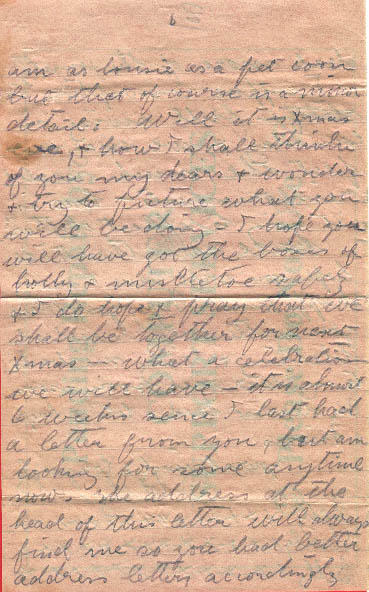 6
am as lousie as a pet coon
but that of course is a minor
detail: Well it is Xmas
eve, & how I shall think
of you my dears & wonder
& try to picture what you
will be doing - I hope you
will have got the boxes of
holly & mistletoe safely
& I do hope & pray that we
shall be together for next
Xmas - what a celebration
we will have - it is about
6 weeks since I last had
a letter from you, but am
looking for some anytime
now. The address at the
head of this letter will always
find me so you had better
address letters accordingly